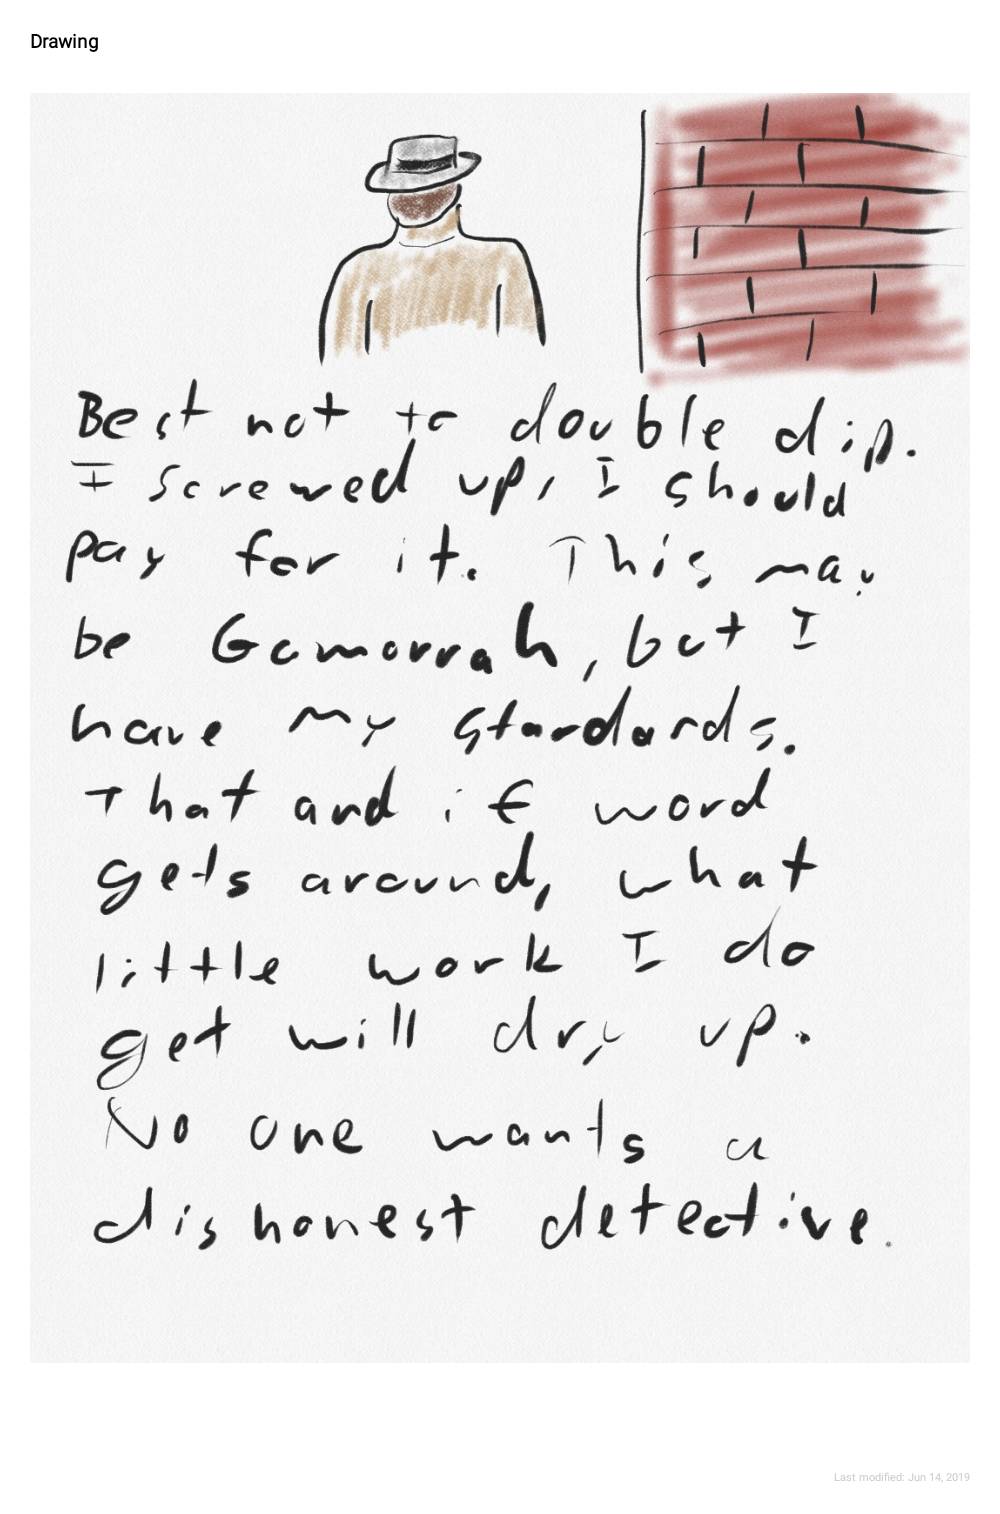 Drawing
Best not to double dip.
I screwed up, I should
pay for it. This may
be Gomorrah, but I
have my standards.
That and if word
gets around, what
little work I do
get will dry up.
No one wants a
dishonest detective.
Last modified: Jun 14, 2019